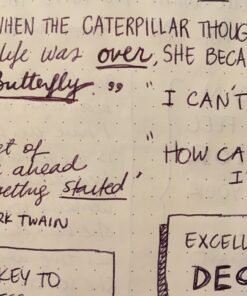 WHEN THE CATERPILLAR THOUG
life was over, SHE BECA
Butterfly."
" I CAN'T
et of
ahead
etting started"
RK TWAIN
" HOW CA
I
KEY TO
EXCELL
DES